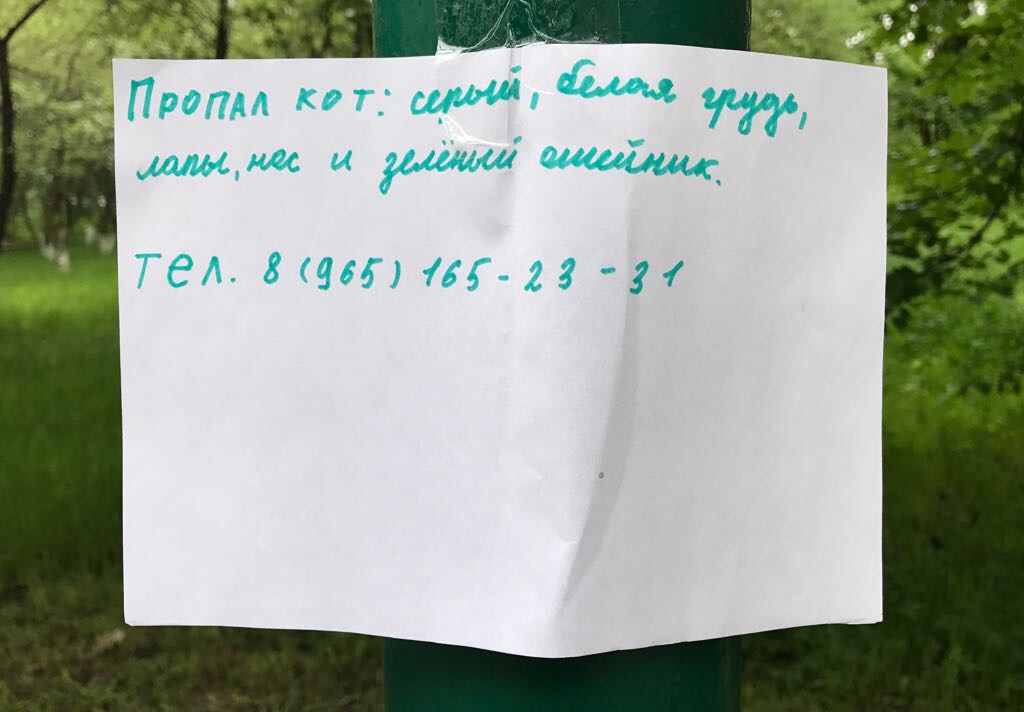 Пропал кот: серый, белая грудь,
лапы, нос и зелёный ошейник.
тел. 8 (965) 165-23-31